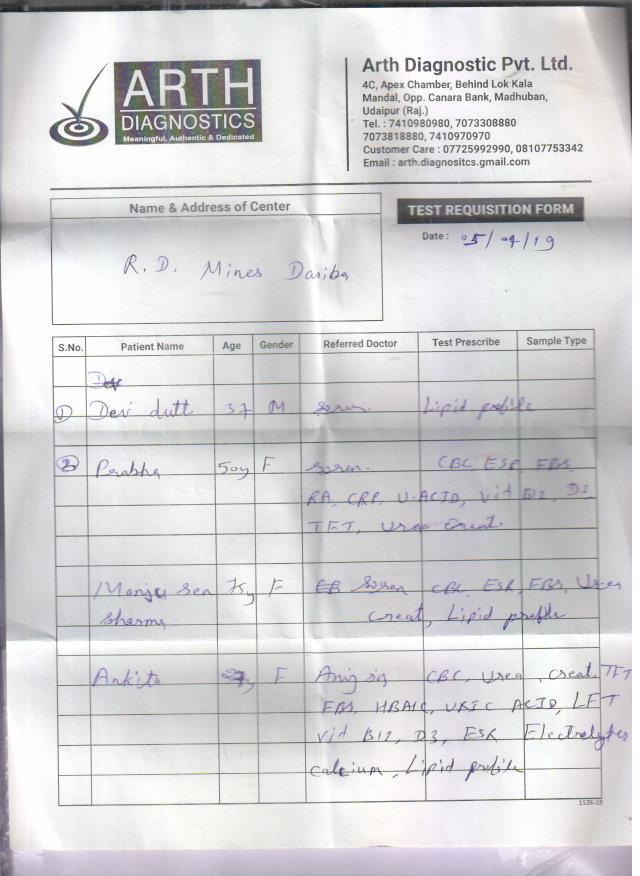 ARTH
DIAGNOSTICS
Meaningful, Authentic & Dedicated
Arth Diagnostic Pvt. Ltd.
4C, Apex Chamber, Behind Lok Kala
Mandal, Opp. Canara Bank, Madhuban,
Udaipur (Raj.)
Tel. : 7410980980, 7073308880
7073818880, 7410970970
Customer Care : 07725992990, 08107753342
Email : arth.diagnositcs.gmail.com
Name & Address of Center
TEST REQUISITION FORM
Date : 05/ /19
R. D. Mines Dariba
S.No. Patient Name Age Gender Referred Doctor Test Prescribe Sample Type
1 Devi dutt 37 M Soren. Lipid profile
2 Prabha 50y F Soren. CBC ESR, FBS,
RA, CRP, U.ACID, Vit B12, D3
TFT, Urea Creat.
Manju Sharma F Soren CBC, ESR, FBS, Urea
Creat, Lipid profile
Ankita F CBC, Urea, Creat. TFT
FBS, HBA1C, URIC ACID, LFT
Vit B12, D3, ESR Electrolytes
Calcium, Lipid profile
1526-18